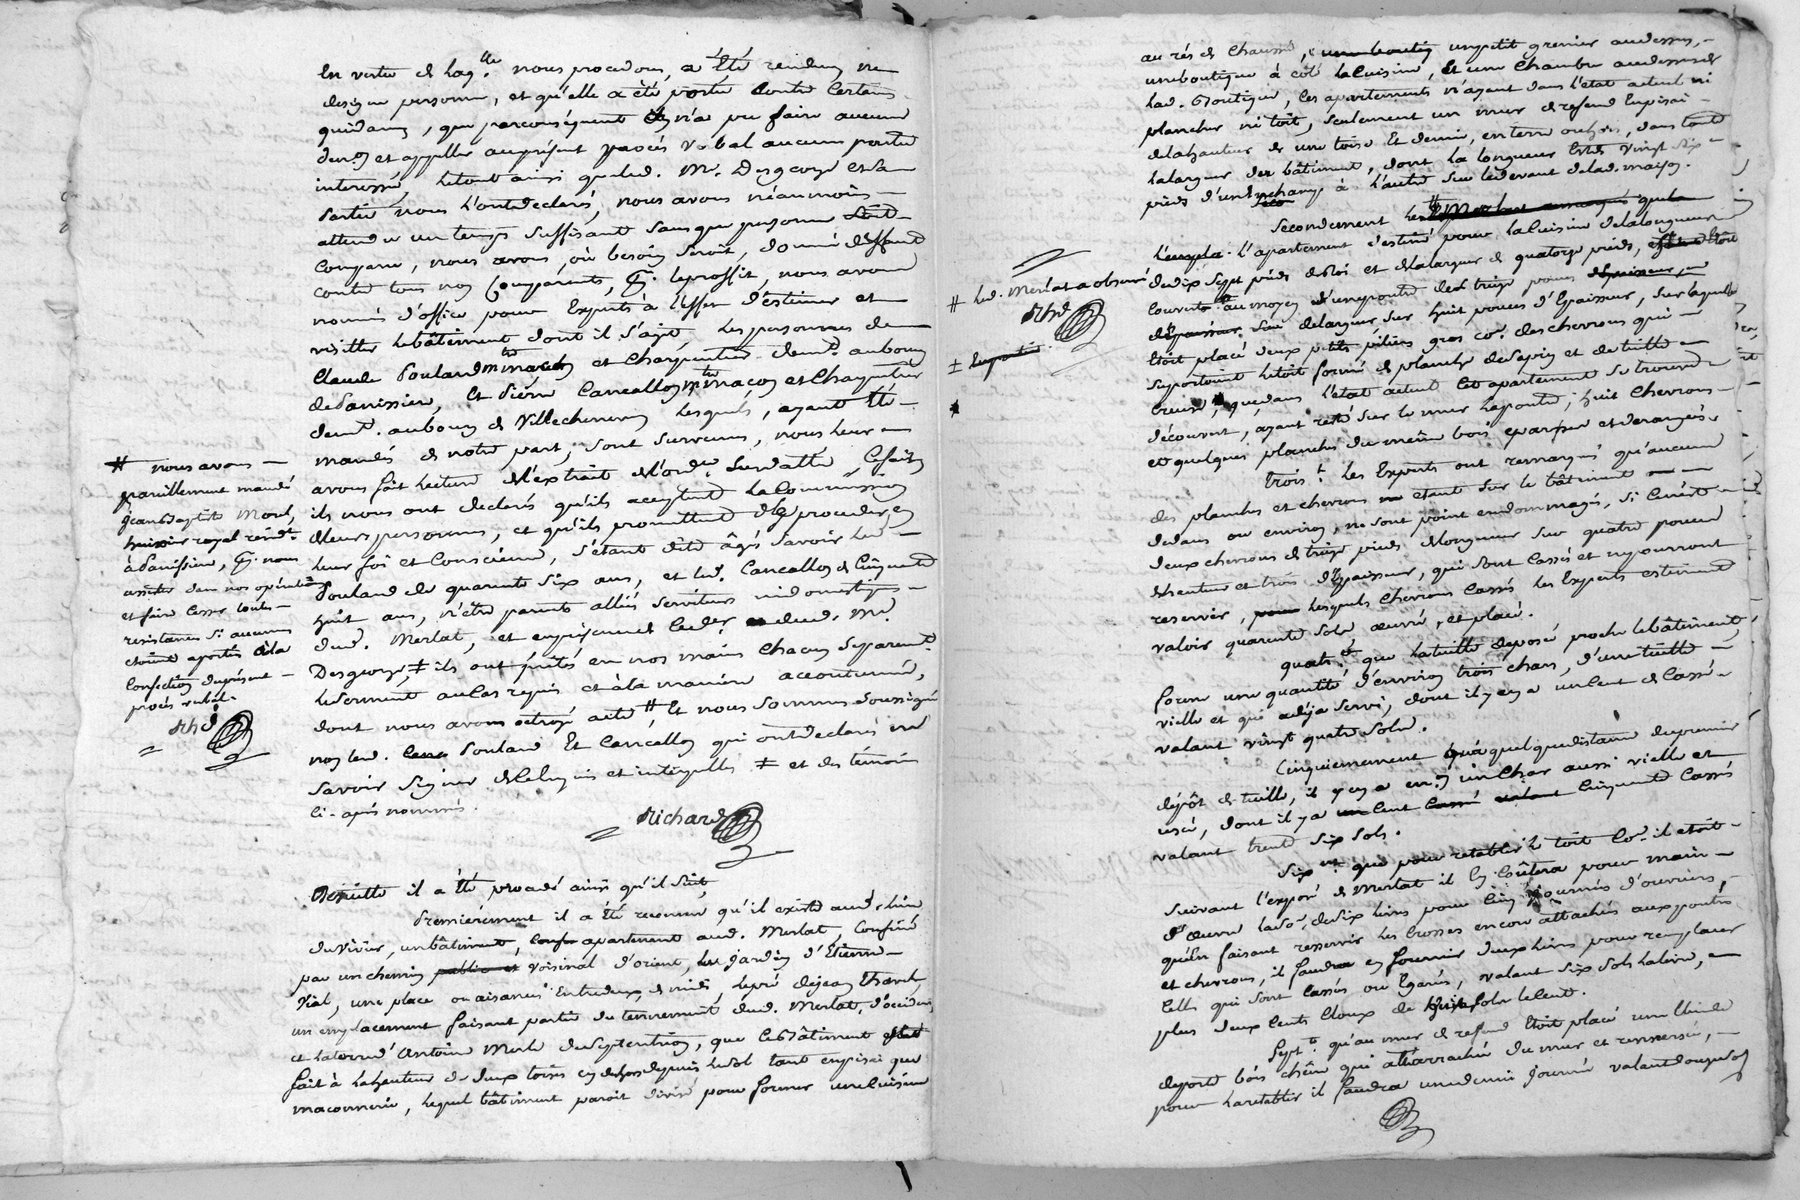 En vertu de laq.lle nous procedons, a été rendue ne
designe personne, et qu'elle a été portée contre certains
quidams, que par conséquent il n'a pu faire aucune
den.on et appeller au présent procès verbal aucune partie
interressé, le tout ainsi que led. Mr. Desgeorge et sa
partie nous l'ont declaré, nous avons néanmoins
attendu un temps suffisant sans que personne
comparu, nous avons, où besoin seroit, donné deffaut
contre tous non comparants, le proffit, nous avons
nommé d'office pour Experts à l'effet d'estimer et
visitter le bâtiment dont il s'agit, les personnes de
Claude Souland m.tre maçon et Charpentier dem.t au bourg
de Panissiere, Et Pierre Cancallon m.tre maçon et Charpentier
dem.t au bourg de Villechenève lesquels, ayant été
mandés de notre part, sont survenus, nous leur
avons fait lecture de l'extrait de l'ord.ce susdattée, ce fait
ils nous ont declaré qu'ils acceptent la Commission
de leurs personnes, et qu'ils promettent de proceder en
leur foi et Conscience, s'étant dits âgés savoir led.
Souland de quarente six ans, et led. Cancallon de Cinquente
huit ans, n'être parents alliés serviteurs ni domestiques
dud. Merlat, et en présence dud. Mr.
Desgeorge, ‡ ils ont prêtés en nos mains chacun séparem.t
le serment au cas requis et à la manière accoutumée,
dont nous avons octroyé acte #, Et nous sommes soussigné
non led. Souland Et Cancallon qui ont declarés ne
savoir signer de ce enquis et interpellés ‡ et des temoins
ci-après nommés.
Richard
# nous avons
pareillement mandé
Jean Baptiste Morel,
huissier royal résid.t
à Panissiere, nous
assister dans nos opérations
et faire cesser toutes
resistances si aucunes
etoient aportées à la
confection du présent
procès verbal.
Rhd
De suitte il a été procedé ainsi qu'il suit,
Premierement il a été reconnu qu'il existe aud. lieu
du Vivier, un bâtiment, apartenant aud. Merlat, Confiné
par un chemin public et voisinal d'orient, le jardin d'Etienne
Vial, une place ou aisances entre deux, de midi, le pré de Jean
un emplacement faisant partie du tenement dud. Merlat, d'occident
et la terre d'Antoine Merle du septentrion, que ce bâtiment
fait à la hauteur de deux toises en dehors depuis le sol tant en pisai que
maçonnerie, lequel bâtiment paroit divisé pour former une cuisine
au rés de Chaussé, un petit grenier au dessus,
une boutique à côté la cuisine, et une chambre au dessus de
lad. Boutique, ces apartements n'ayant dans l'état actuel ni
plancher ni toit, seulement un mur de refend en pisai
de la hauteur de une toise Et demie, en terre ou bois, dans toute
la largeur du bâtiment, dont la longueur Est de vingt six
pieds d'un à l'autre sur le devant de lad. maison.
Secondement
l'apartement destiné pour la cuisine de la longueur
de dix sept pieds de Roi et de la largeur de quatorze pieds, étoit
couverte au moyen d'une poutre de treize pouces
de largeur sur huit pouces d'Epaisseur, sur laquelle
étoit placé deux petits piliers gros co.e des chevrons qui
suportoient le toit formé de planches de sapin et de tuille
creuse, que dans l'état actuel cet apartement se trouve
découvert, ayant resté sur le mur la poutre, huit chevrons
et quelques planches du même bois eparses et derangées.
# led. Merlat a observé
Rhd
Trois.t Les Experts ont remarqué qu'aucune
des planches et chevrons etant sur le bâtiment
dedans ou environ, ne sont point endommagés, si ce n'est
deux chevrons de treize pieds de longueur sur quatre pouces
de hauteur et trois d'Epaisseur, qui sont cassés et ne pourront
reservir, lesquels chevrons cassés les Experts estiment
valoir quarente sols œuvré, et placé.
quatr.t que la tuille déposé proche le bâtiment,
forme une quantité d'environ trois chars, d'une tuille
vieille et qui a déja servi, dont il y en a un cent de cassé
valant vingt quatre sols.
Cinquiemement qu'à quelque distance du premier
dépôt de tuille, il y en a env.on un Char aussi vieille et
usé, dont il y a cinquente cassés
valant trente six sols.
Six.nt que pour retablir le toit co.e il etoit
suivant l'exposé de Merlat il en coûtera pour main
d'œuvre la so.e de dix livres pour cinq journées d'ouvriers,
qu'En faisant resservir les brosses encore attachées aux poutres
et chevrons, il faudra en fournir deux livres pour remplacer
celles qui sont cassés ou Egarés, valant six sols la livre,
plus deux cents Cloux de huit sols le cent.
Sept.t qu'au mur de refend étoit placé une
de porte bois chêne qui a été arraché du mur et renversé,
pour la retablir il faudra une demie journée valant douze sols